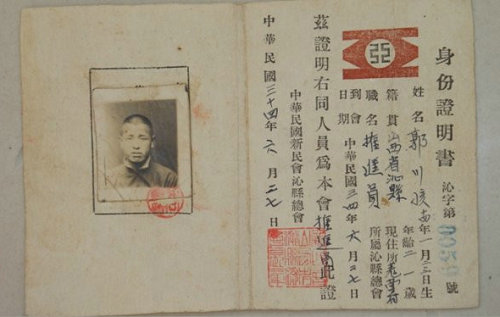 身份證明書
沁字第 號
姓名 郭
年 一月二三日生
年齡 二一歲
籍貫 山西省沁縣
現住所
職名 推進員
所屬 沁縣總會
到會日期 中華民國三四年六月二七日
茲證明右同人員為本會推進員此證
中華民國新民會沁縣總會
中華民國三十四年六月二七日